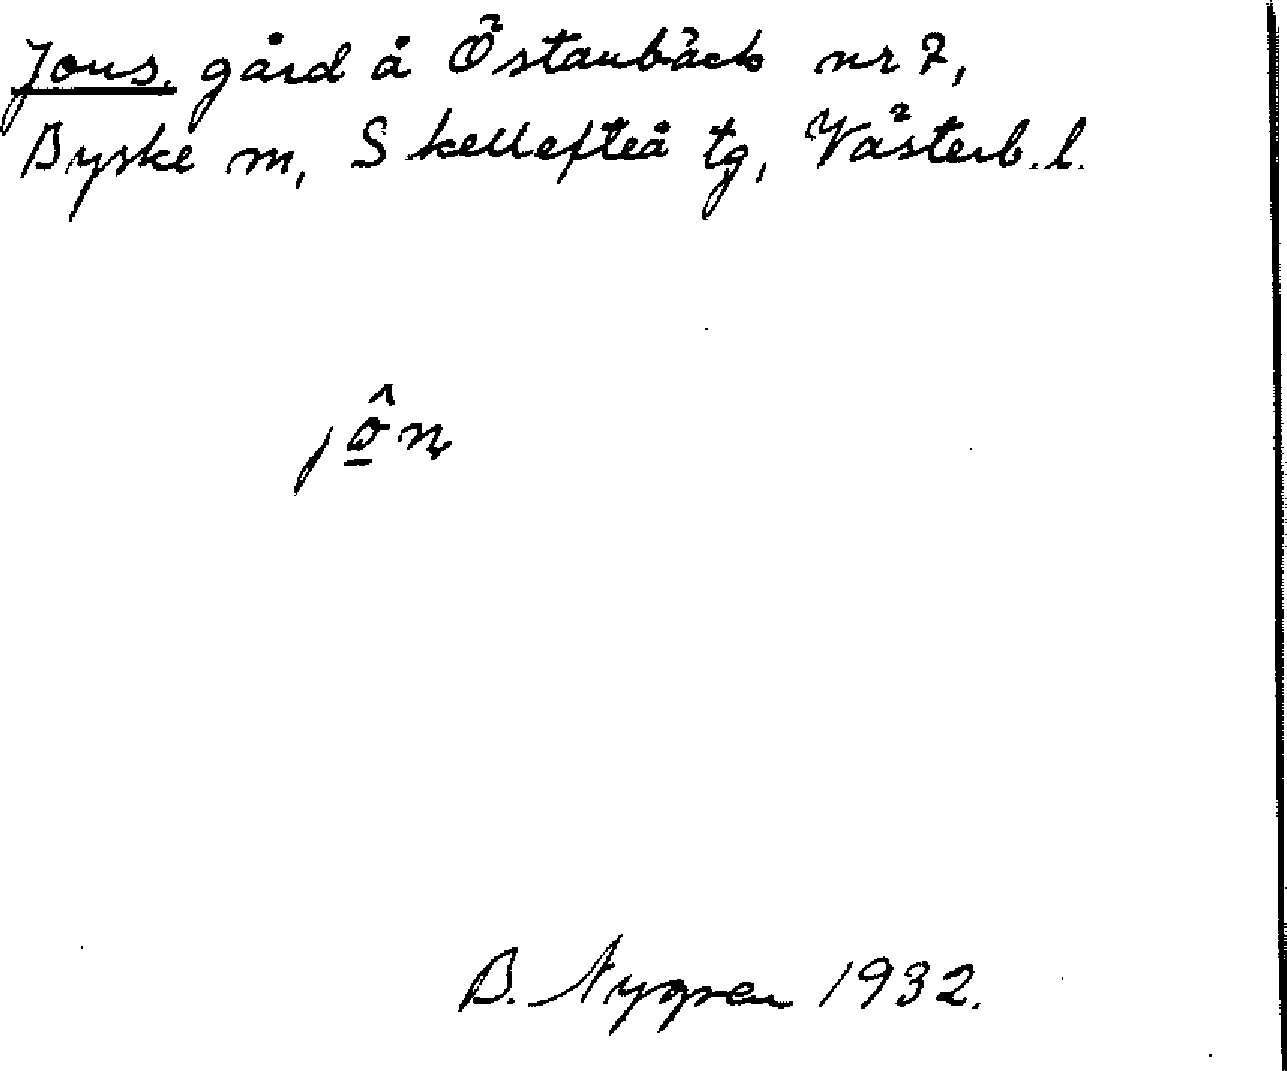 Jons. gård å Östanbäck nr 7,
Byske m, Skellefteå tg, Västerb. l.
jô̱n
B. Nygren 1932.